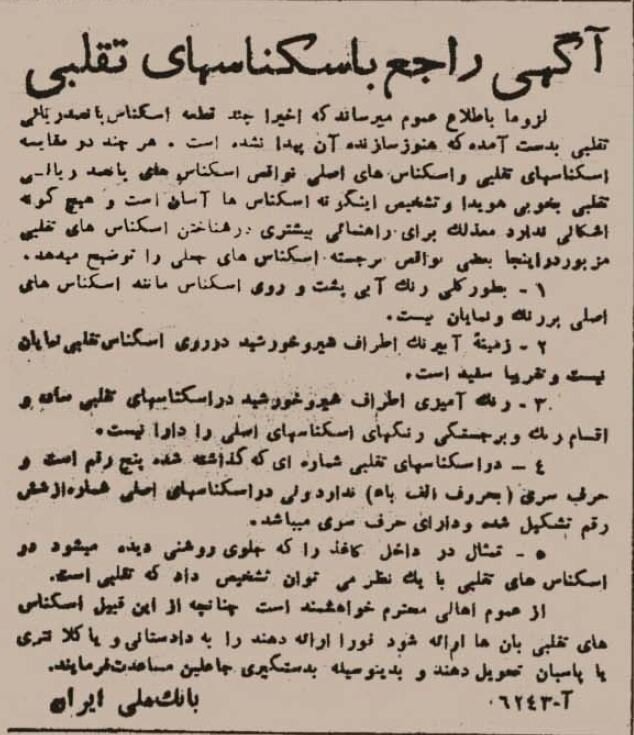 آگهی راجع باسکناسهای تقلبی
لزوما باطلاع عموم میرساند که اخیرا چند قطعه اسکناس پانصدریالی
تقلبی بدست آمده که هنوز سازنده آن پیدا نشده است . هر چند دو مقایسه
اسکناسهای تقلبی و اسکناس های اصلی نواقص اسکناس های پانصد ریالی
تقلبی بخوبی هویدا و تشخیص اینگونه اسکناس ها آسان است و هیچ گونه
اشکالی ندارد معذلک برای راهنمائی بیشتری درشناختن اسکناس های تقلبی
مزبوردراینجا بعضی نواقص برجسته اسکناس های جعلی را توضیح میدهد.
۱ - بطورکلی رنگ آبی پشت و روی اسکناس مانند اسکناس های
اصلی پررنگ و نمایان نیست.
۲ - زمینهٔ آبیرنگ اطراف شیروخورشید درروی اسکناس تقلبی نمایان
نیست و تقریبا سفید است.
۳ - رنگ آمیزی اطراف شیروخورشید دراسکناسهای تقلبی ساده و
اقسام رنگ و برجستگی رنگهای اسکناسهای اصلی را دارا نیست.
٤ - دراسکناسهای تقلبی شماره ای که گذاشته شده پنج رقم است و
حرف سری (بحروف الف باء) نداردولی دراسکناسهای اصلی شماره‌ازشش
رقم تشکیل شده ودارای حرف سری میباشد.
٥ - تمثال در داخل کاغذ را که جلوی روشنی دیده میشود در
اسکناس های تقلبی با یک نظر می توان تشخیص داد که تقلبی است.
از عموم اهالی محترم خواهشمند است چنانچه از این قبیل اسکناس
های تقلبی بان ها ارائه شود فورا ارائه دهند را به دادستانی و یاکلا نتری
یا پاسبان تحویل دهند و بدینوسیله بدستگیری جاعلین مساعدت‌فرمایند.
آ-٠٦٢٤٣ بانک‌ملی ایران